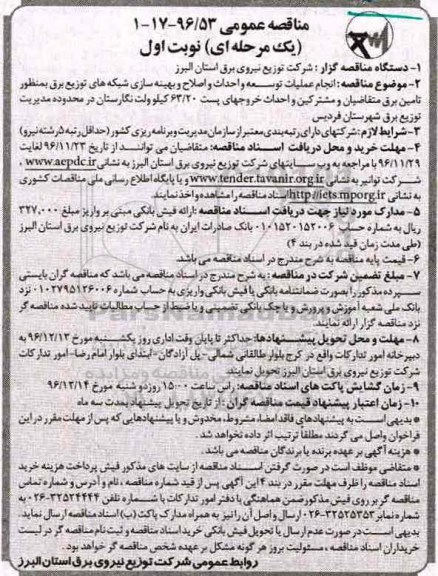 مناقصه عمومی ۹۶/۵۳-۱۷-۱
(یک مرحله ای) نوبت اول
۱- دستگاه مناقصه گزار : شرکت توزیع نیروی برق استان البرز
۲-موضوع مناقصه: انجام عملیات توسعه و احداث و اصلاح و بهینه سازی شبکه های توزیع برق بمنظور
تامین برق متقاضیان و مشترکین و احداث خروجهای پست ۶۳/۲۰ کیلو ولت نگارستان در محدوده مدیریت
توزیع برق شهرستان فردیس
۳-شرایط لازم : شرکتهای دارای رتبه بندی معتبر از سازمان مدیریت و برنامه ریزی کشور (حداقل رتبه ۵ رشته نیرو)
۴- مهلت خرید و محل دریافت اسناد مناقصه: متقاضیان می توانند از تاریخ ۹۶/۱۱/۲۳ لغایت
۹۶/۱۱/۲۹ با مراجعه به وب سایتهای شرکت توزیع نیروی برق استان البرز به نشانی www.aepdc.ir ,
شرکت توانیر به نشانی www.tender.tavanir.org.ir و یا پایگاه اطلاع رسانی ملی مناقصات کشوری
به نشانی http://iets.mporg.ir اسناد مناقصه را مشاهده و اخذ نمایند.
۵- مدارک مورد نیاز جهت دریافت اسناد مناقصه :ارائه فیش بانکی مبنی بر واریز مبلغ ۳۲۷,۰۰۰
ریال به شماره حساب ۰۱۰۱۵۲۰۱۵۲۰۰۶ بانک صادرات ایران به نام شرکت توزیع نیروی برق استان البرز
(طی مدت زمان قید شده در بند ۴)
۶- قیمت پایه مناقصه به شرح مندرج در اسناد مناقصه می باشد.
۷- مبلغ تضمین شرکت در مناقصه: به شرح مندرج در اسناد مناقصه می باشد که مناقصه گران بایستی
سپرده مذکور را بصورت ضمانتنامه بانکی یا فیش بانکی واریزی به حساب شماره ۰۱۰۲۷۹۵۱۲۶۰۰۶ نزد
بانک ملی شعبه آموزش و پرورش و یا چک بانکی تضمینی و یا ضبط از حساب مطالبات تایید شده مناقصه گر
نزد مناقصه گزار ارائه نمایند.
۸- مهلت و محل تحویل پیشنهادها: حداکثر تا پایان وقت اداری روز یکشنبه مورخ ۹۶/۱۲/۱۳ به
دبیرخانه امور تدارکات واقع در کرج بلوار طالقانی شمالی-پل آزادگان- ابتدای بلوار امام رضا- امور تدارکات
شرکت توزیع نیروی برق استان البرز تحویل نمایند.
۹- زمان گشایش پاکت های اسناد مناقصه: راس ساعت ۱۵:۰۰ روز دو شنبه مورخ ۹۶/۱۲/۱۴
۱۰- زمان اعتبار پیشنهاد قیمت مناقصه گران : از تاریخ تحویل پیشنهاد بمدت سه ماه
* بدیهی است به پیشنهادهای فاقد امضاء، مشروط، مخدوش و یا پیشنهادهایی که پس از مهلت مقرر در این
فراخوان واصل می گردند مطلقا ترتیب اثر داده نخواهد شد.
* هزینه آگهی بر عهده برنده یا برندگان مناقصه می باشد.
* متقاضی موظف است در صورت گرفتن اسناد مناقصه از سایت های مذکور فیش پرداخت هزینه خرید
اسناد مناقصه را ظرف مهلت مقرر در بند ۴ این آگهی پس از قید شماره مناقصه ، نام و آدرس و شماره تماس
مناقصه گر بر روی فیش مذکور ضمن هماهنگی با دفتر امور تدارکات با شماره تلفن ۳۲۵۲۴۴۴۴-۰۲۶ به
شماره نمابر ۳۲۵۲۵۳۵۳-۰۲۶ ارسال و اصل آن را نیز به همراه مدارک پاکت (ب) اسناد مناقصه ارسال نماید.
بدیهی است در صورت عدم ارسال یا تحویل فیش بانکی خرید اسناد مناقصه و ثبت نام مناقصه گر در لیست
خریداران اسناد مناقصه ، مسئولیت بروز هر گونه مشکل بر عهده شخص مناقصه گر خواهد بود.
روابط عمومی شرکت توزیع نیروی برق استان البرز